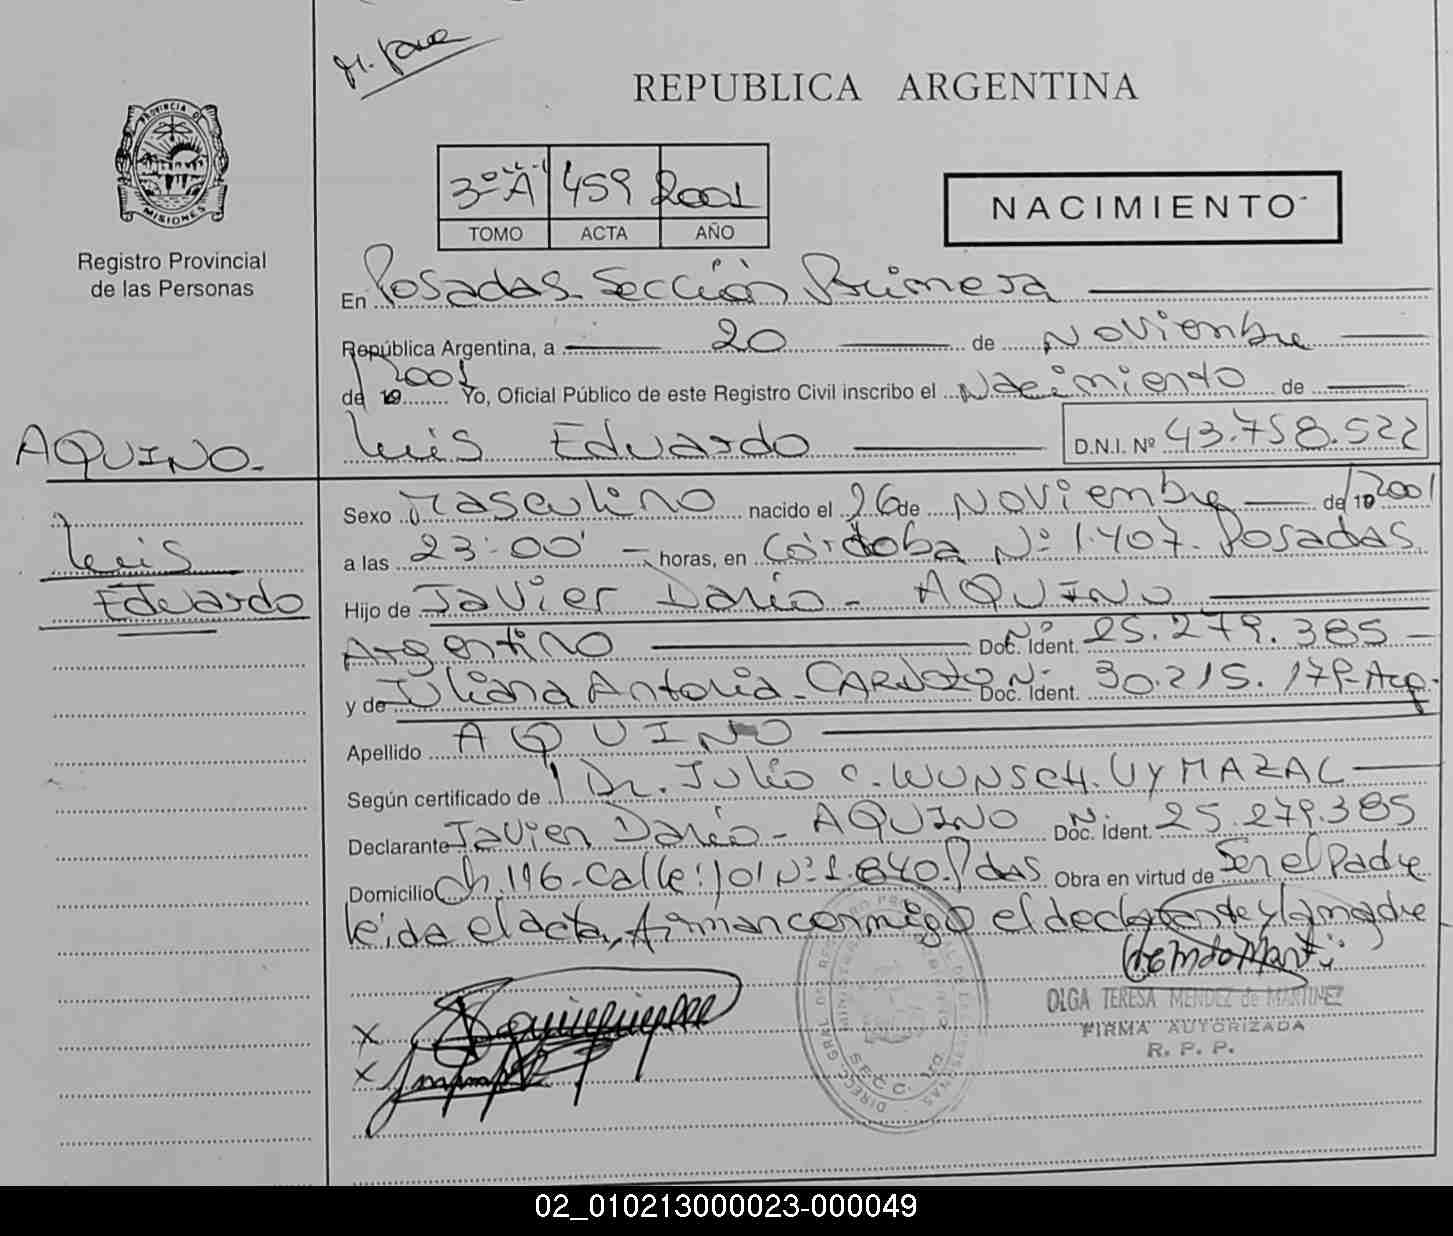 REPUBLICA ARGENTINA
PROVINCIA DE
MISIONES
Registro Provincial
de las Personas
3º A 459 2001
TOMO ACTA AÑO
NACIMIENTO
En Posadas Sección Primera
República Argentina, a 20 de Noviembre
de 19 2001 Yo, Oficial Público de este Registro Civil inscribo el Nacimiento de
AQUINO.
Luis Eduardo D.N.I. Nº 43.758.522
Luis
Eduardo
Sexo Masculino nacido el de Noviembre de 19 2001
a las 23:00 horas, en Córdoba Nº 1.407. Posadas
Hijo de Javier Darío - AQUINO
Argentino Doc. Ident. Nº 25.279.385
y de Juliana Antonia - CARDOZO Doc. Ident. Nº 30.215.179 Arg.
Apellido AQUINO
Según certificado de Dr. Julio C. WUNSCH. UYMAZAL
Declarante Javier Darío - AQUINO Doc. Ident. Nº 25.279.385
Domicilio Ch. 196 - Calle: 101 Nº 1.840. Pdas Obra en virtud de Ser el Padre
leída el acta, firman conmigo el declarante y la madre
OLGA TERESA MENDEZ de MARTINEZ
FIRMA AUTORIZADA
R. P. P.
02_010213000023-000049